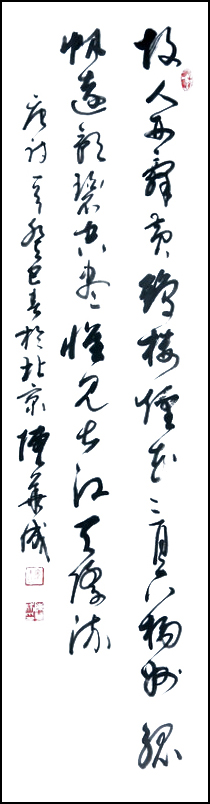 故人西辭黃鶴樓煙花三月下揚州孤
帆遠影碧空盡惟見長江天際流
唐詩一首癸巳春於北京